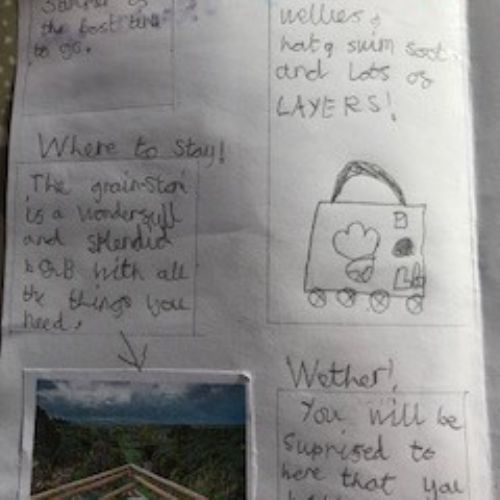 the best time
to go.
wellies,
hat, swim soot
and lots of
LAYERS!
Where to stay!
The grainstor
is a wonderfull
and splendid
B&B with all
the things you
need.
Wether!
You will be
suprised to
here that you